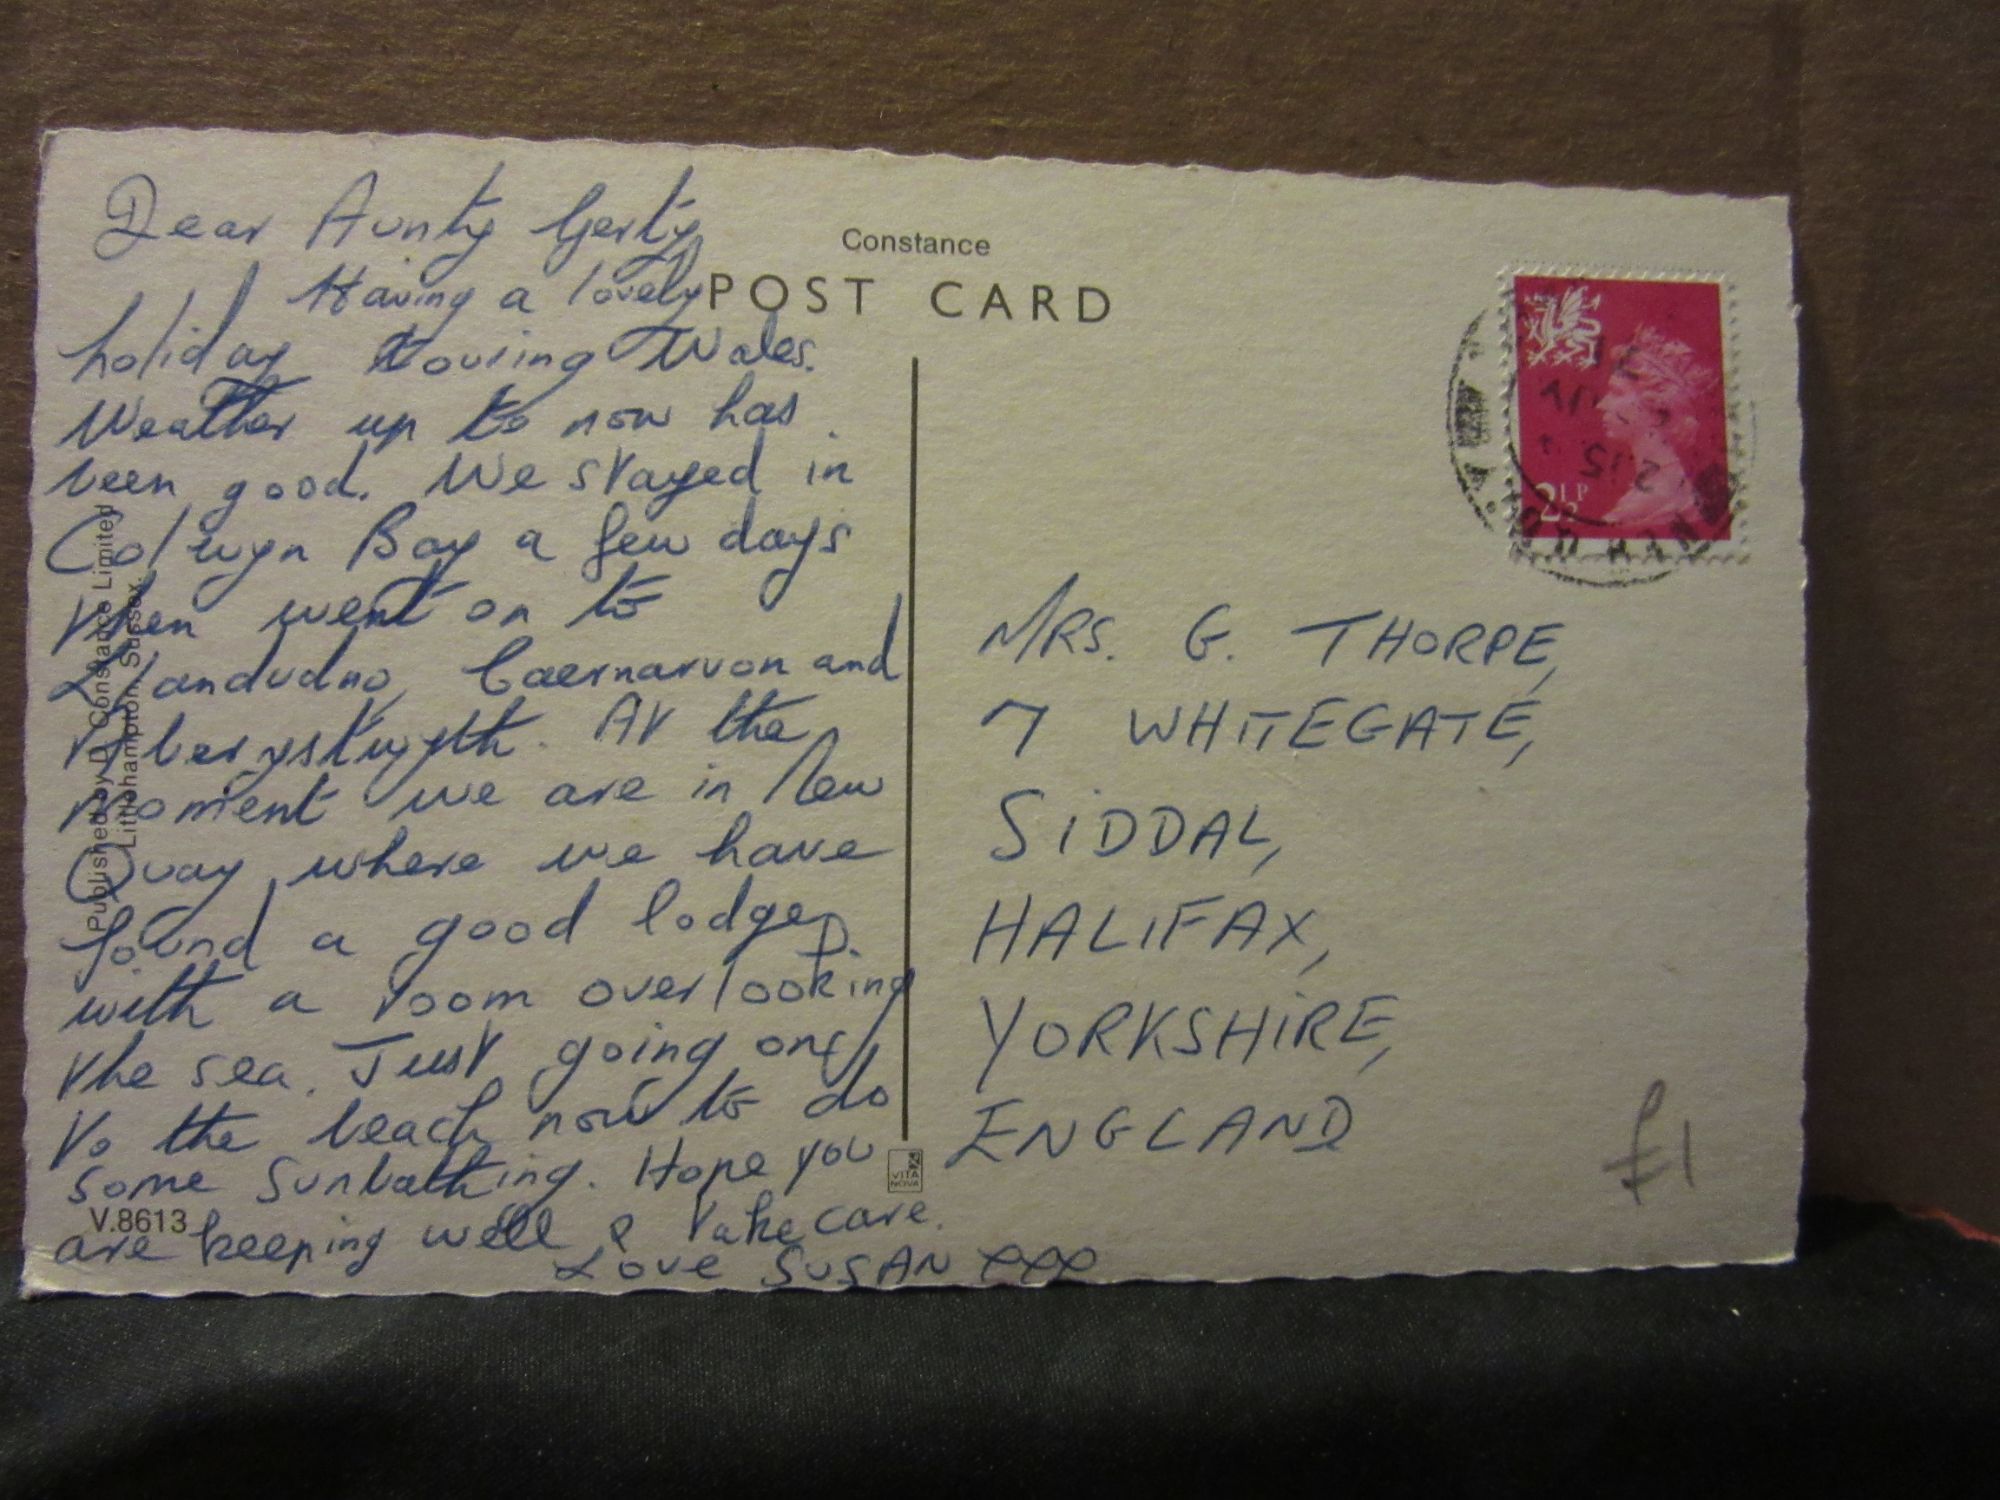 Dear Aunty Gerty
Having a lovely
holiday touring Wales.
Weather up to now has
been good. We stayed in
Colwyn Bay a few days
then went on to
Llandudno, Caernarvon and
Aberystwyth. At the
moment we are in New
Quay where we have
found a good lodge
with a room overlooking
the sea. Just going
to the beach now to do
some sunbathing. Hope you
are keeping well & take care.
Love SUSAN xxx
Constance
POST CARD
Published by D. Constance Limited
Littlehampton, Sussex.
V.8613
VITA
NOVA
2½P
2.15
MRS. G. THORPE,
7 WHITEGATE,
SIDDAL,
HALIFAX,
YORKSHIRE,
ENGLAND
£1